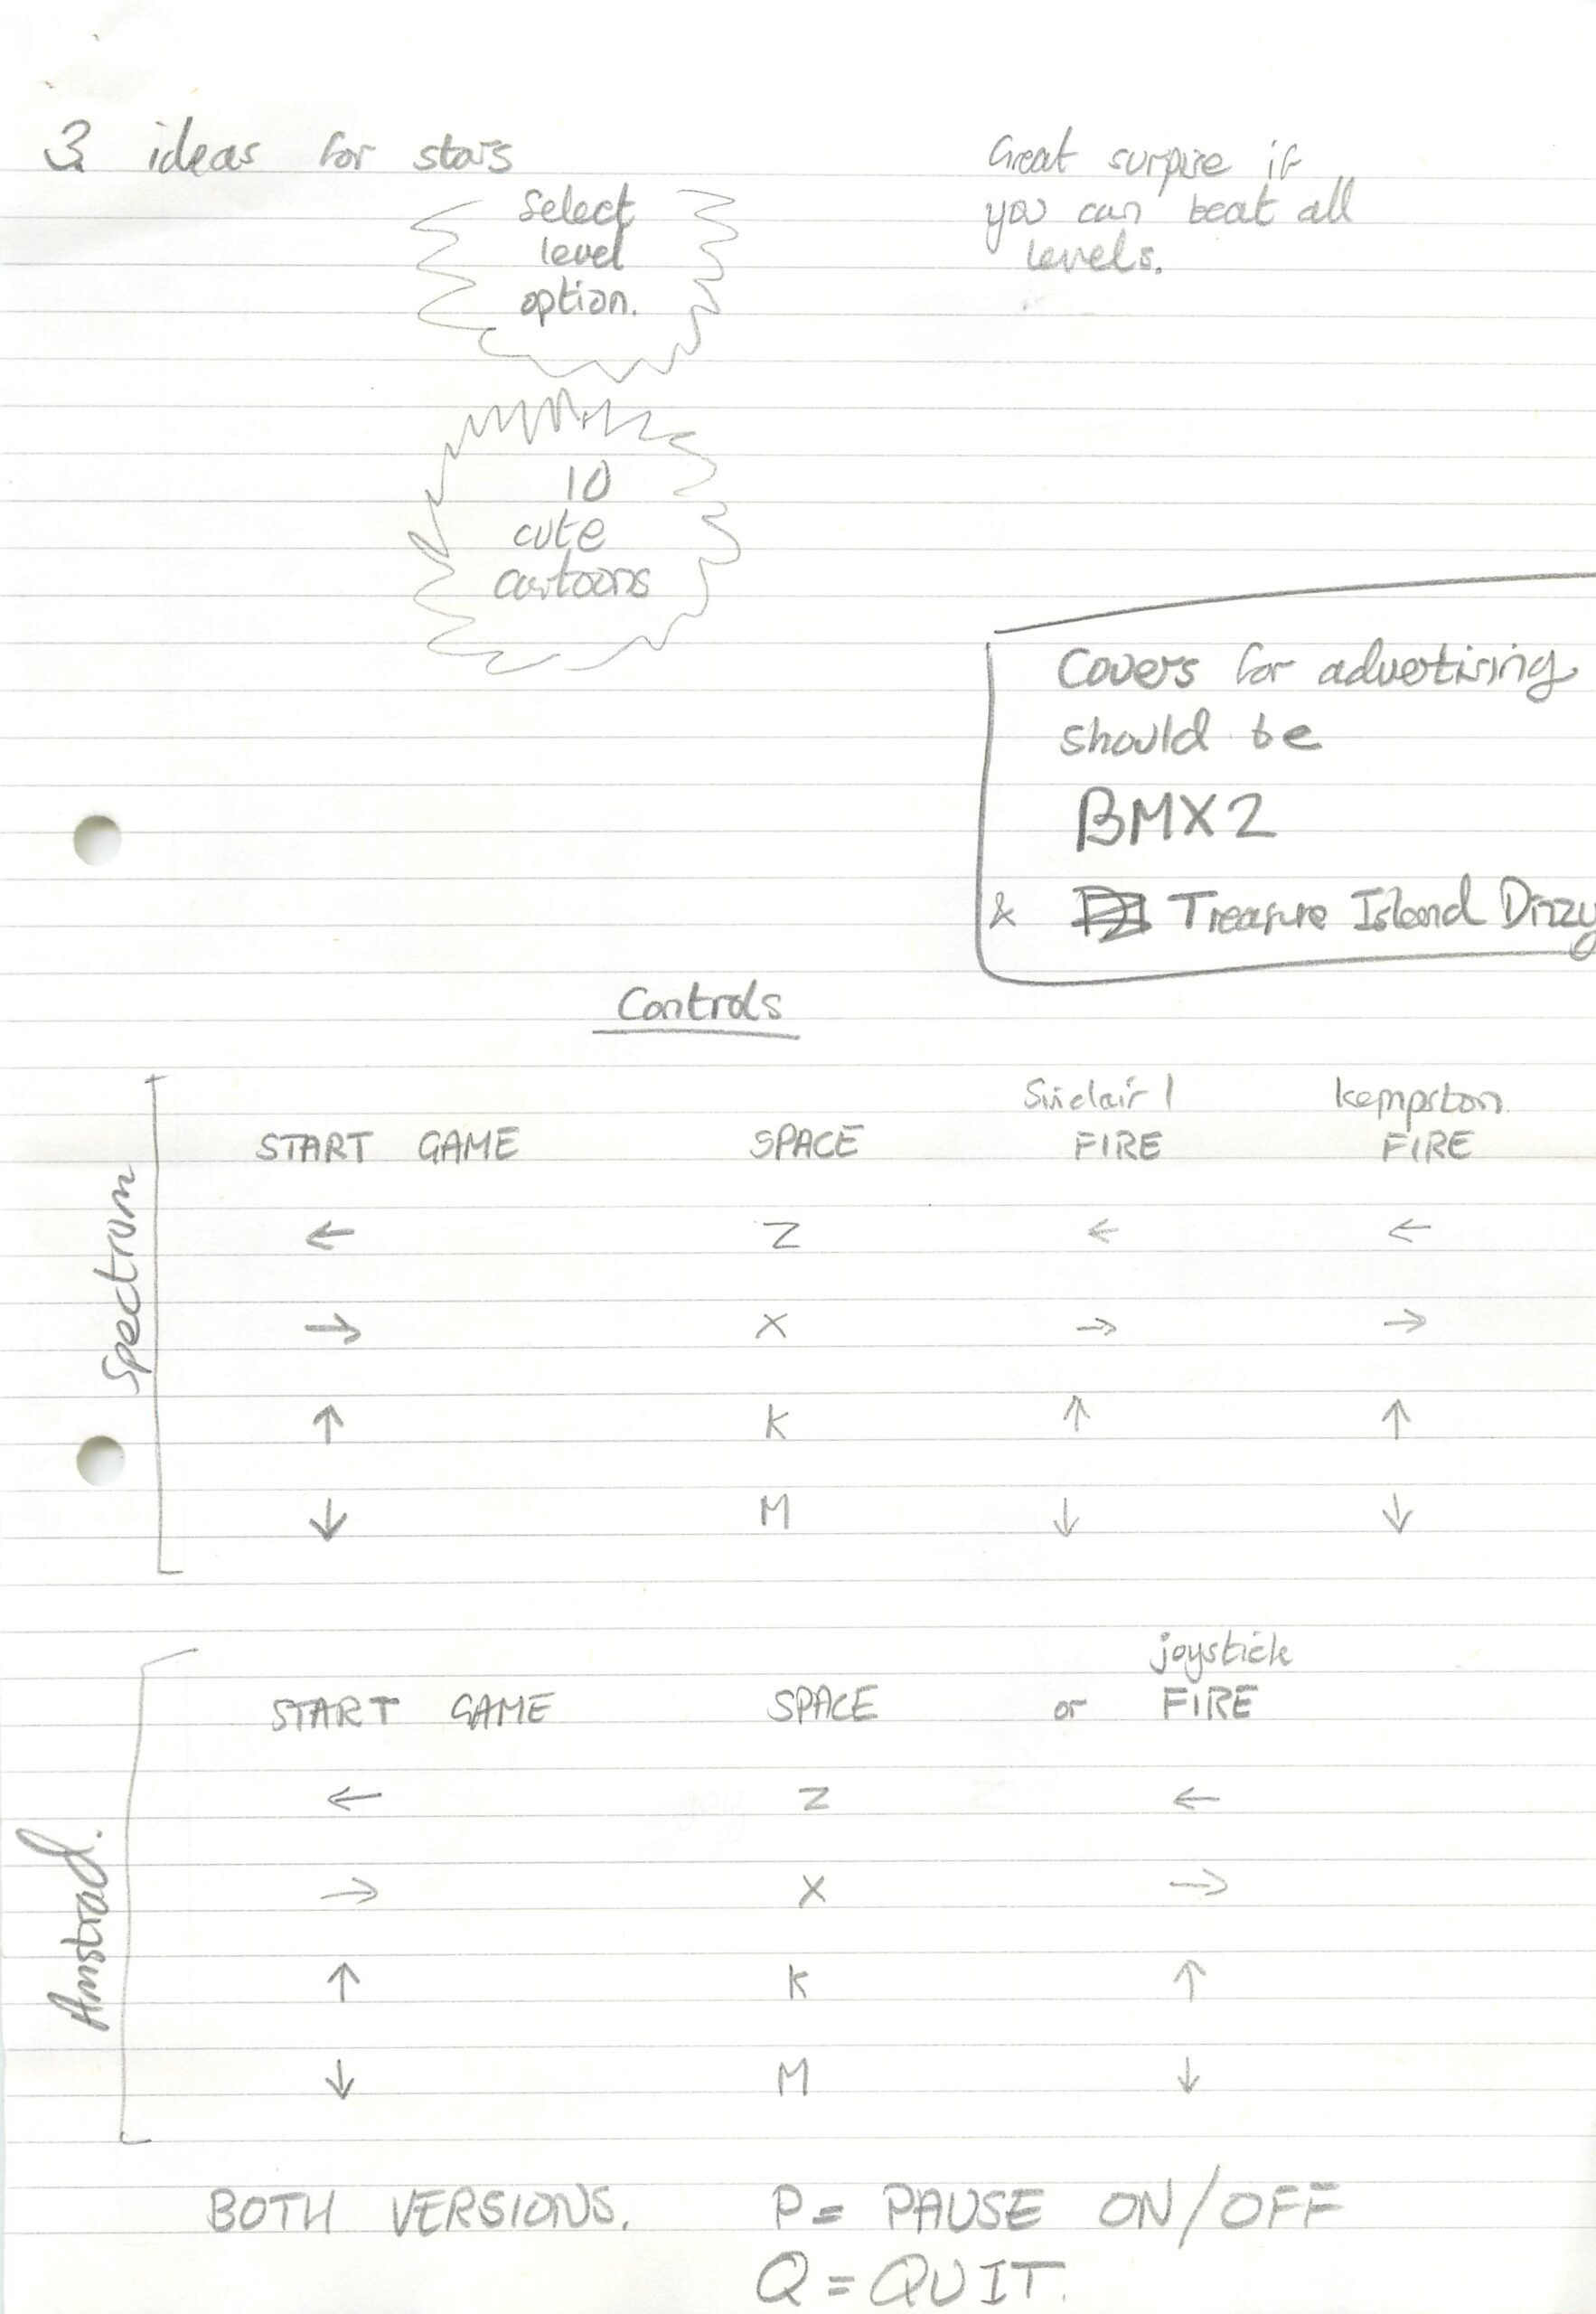 3 ideas for stars
Select
level
option.
Great surpire if
you can beat all
levels.
10
cute
cartoons
Covers for advertising
should be
BMX2
& Treasure Island Dizzy
Controls
Spectrum
Sinclair 1 kempston
START GAME SPACE FIRE FIRE
← Z ← ←
→ X → →
↑ K ↑ ↑
↓ M ↓ ↓
Amstrad.
joystick
START GAME SPACE or FIRE
← Z ←
→ X →
↑ K ↑
↓ M ↓
BOTH VERSIONS. P = PAUSE ON/OFF
Q = QUIT.